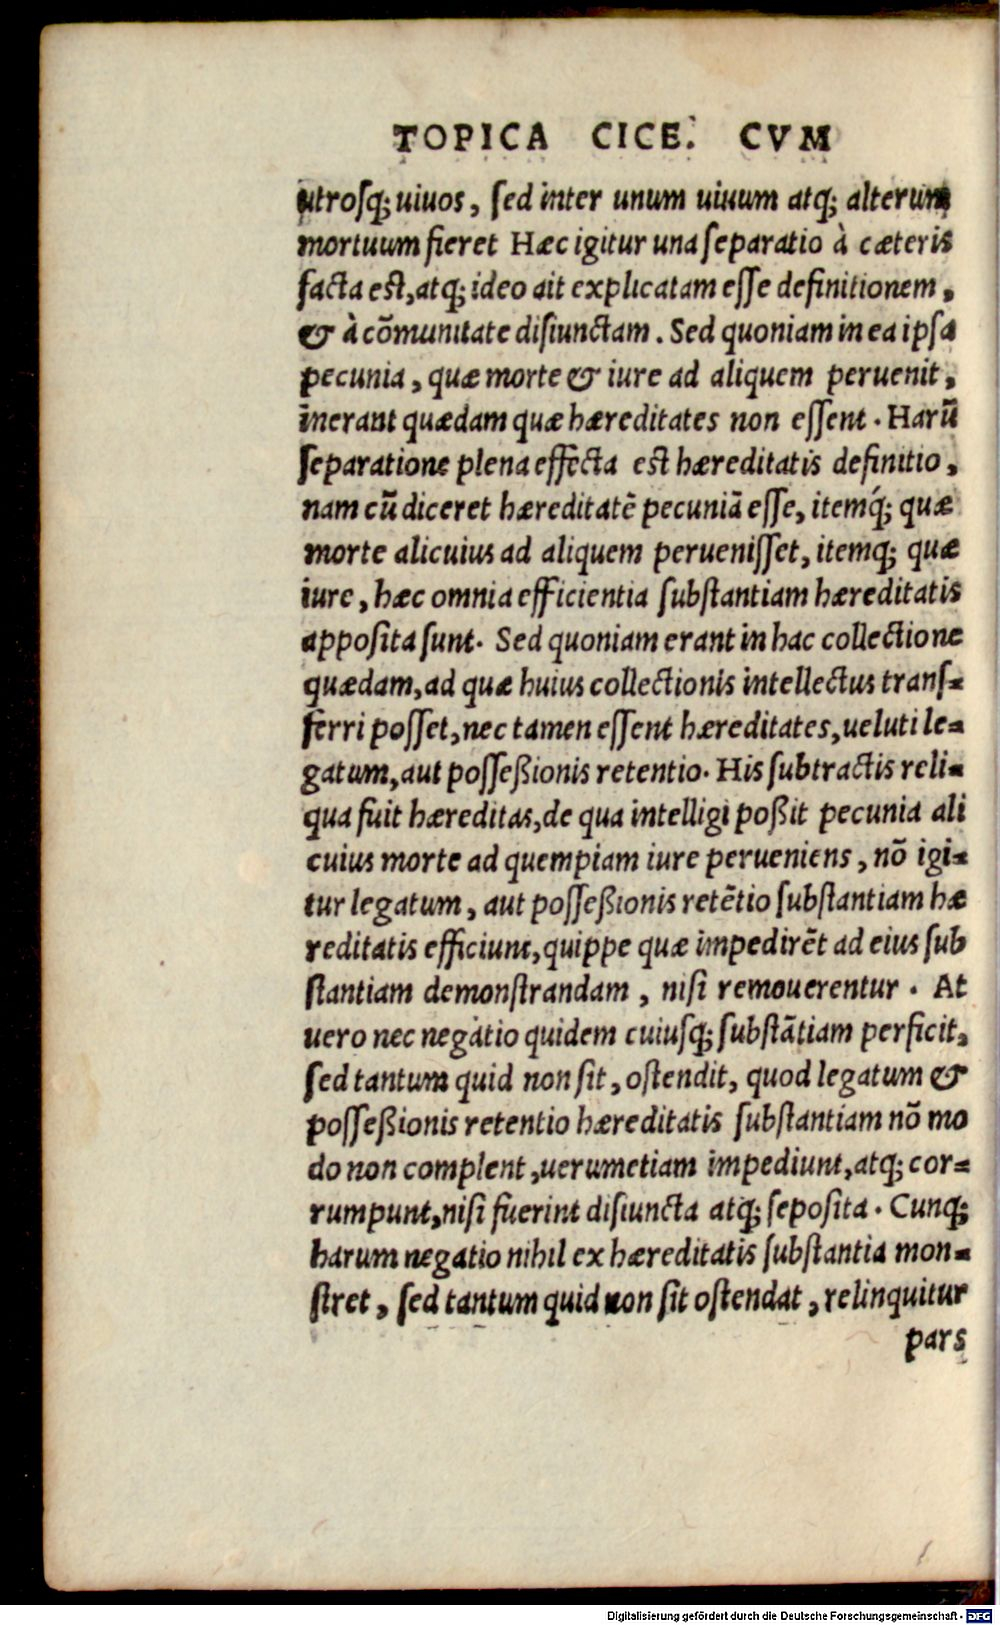 TOPICA CICE. CVM
utrosq; uiuos, sed inter unum uiuum atq; alterum
mortuum fieret Hæc igitur una separatio à cæteris
facta est, atq; ideo ait explicatam esse definitionem,
& à cõmunitate disiunctam. Sed quoniam in ea ipsa
pecunia, quæ morte & iure ad aliquem peruenit,
inerant quædam quæ hæreditates non essent. Harũ
separatione plena effecta est hæreditatis definitio,
nam cũ diceret hæreditatẽ pecuniã esse, itemq́; quæ
morte alicuius ad aliquem peruenisset, itemq; quæ
iure, hæc omnia efficientia substantiam hæreditatis
apposita sunt. Sed quoniam erant in hac collectione
quædam, ad quæ huius collectionis intellectus trans-
ferri posset, nec tamen essent hæreditates, ueluti le-
gatum, aut posseßionis retentio. His subtractis reli-
qua fuit hæreditas, de qua intelligi poßit pecunia ali
cuius morte ad quempiam iure perueniens, nõ igi-
tur legatum, aut posseßionis retẽtio substantiam hæ
reditatis efficiunt, quippe quæ impedirẽt ad eius sub
stantiam demonstrandam, nisi remouerentur. At
uero nec negatio quidem cuiusq; substãtiam perficit,
sed tantum quid non sit, ostendit, quod legatum &
posseßionis retentio hæreditatis substantiam nõ mo
do non complent, uerumetiam impediunt, atq; cor-
rumpunt, nisi fuerint disiuncta atq; seposita. Cunq;
harum negatio nihil ex hæreditatis substantia mon-
stret, sed tantum quid non sit ostendat, relinquitur
pars
Digitalisierung gefördert durch die Deutsche Forschungsgemeinschaft - DFG